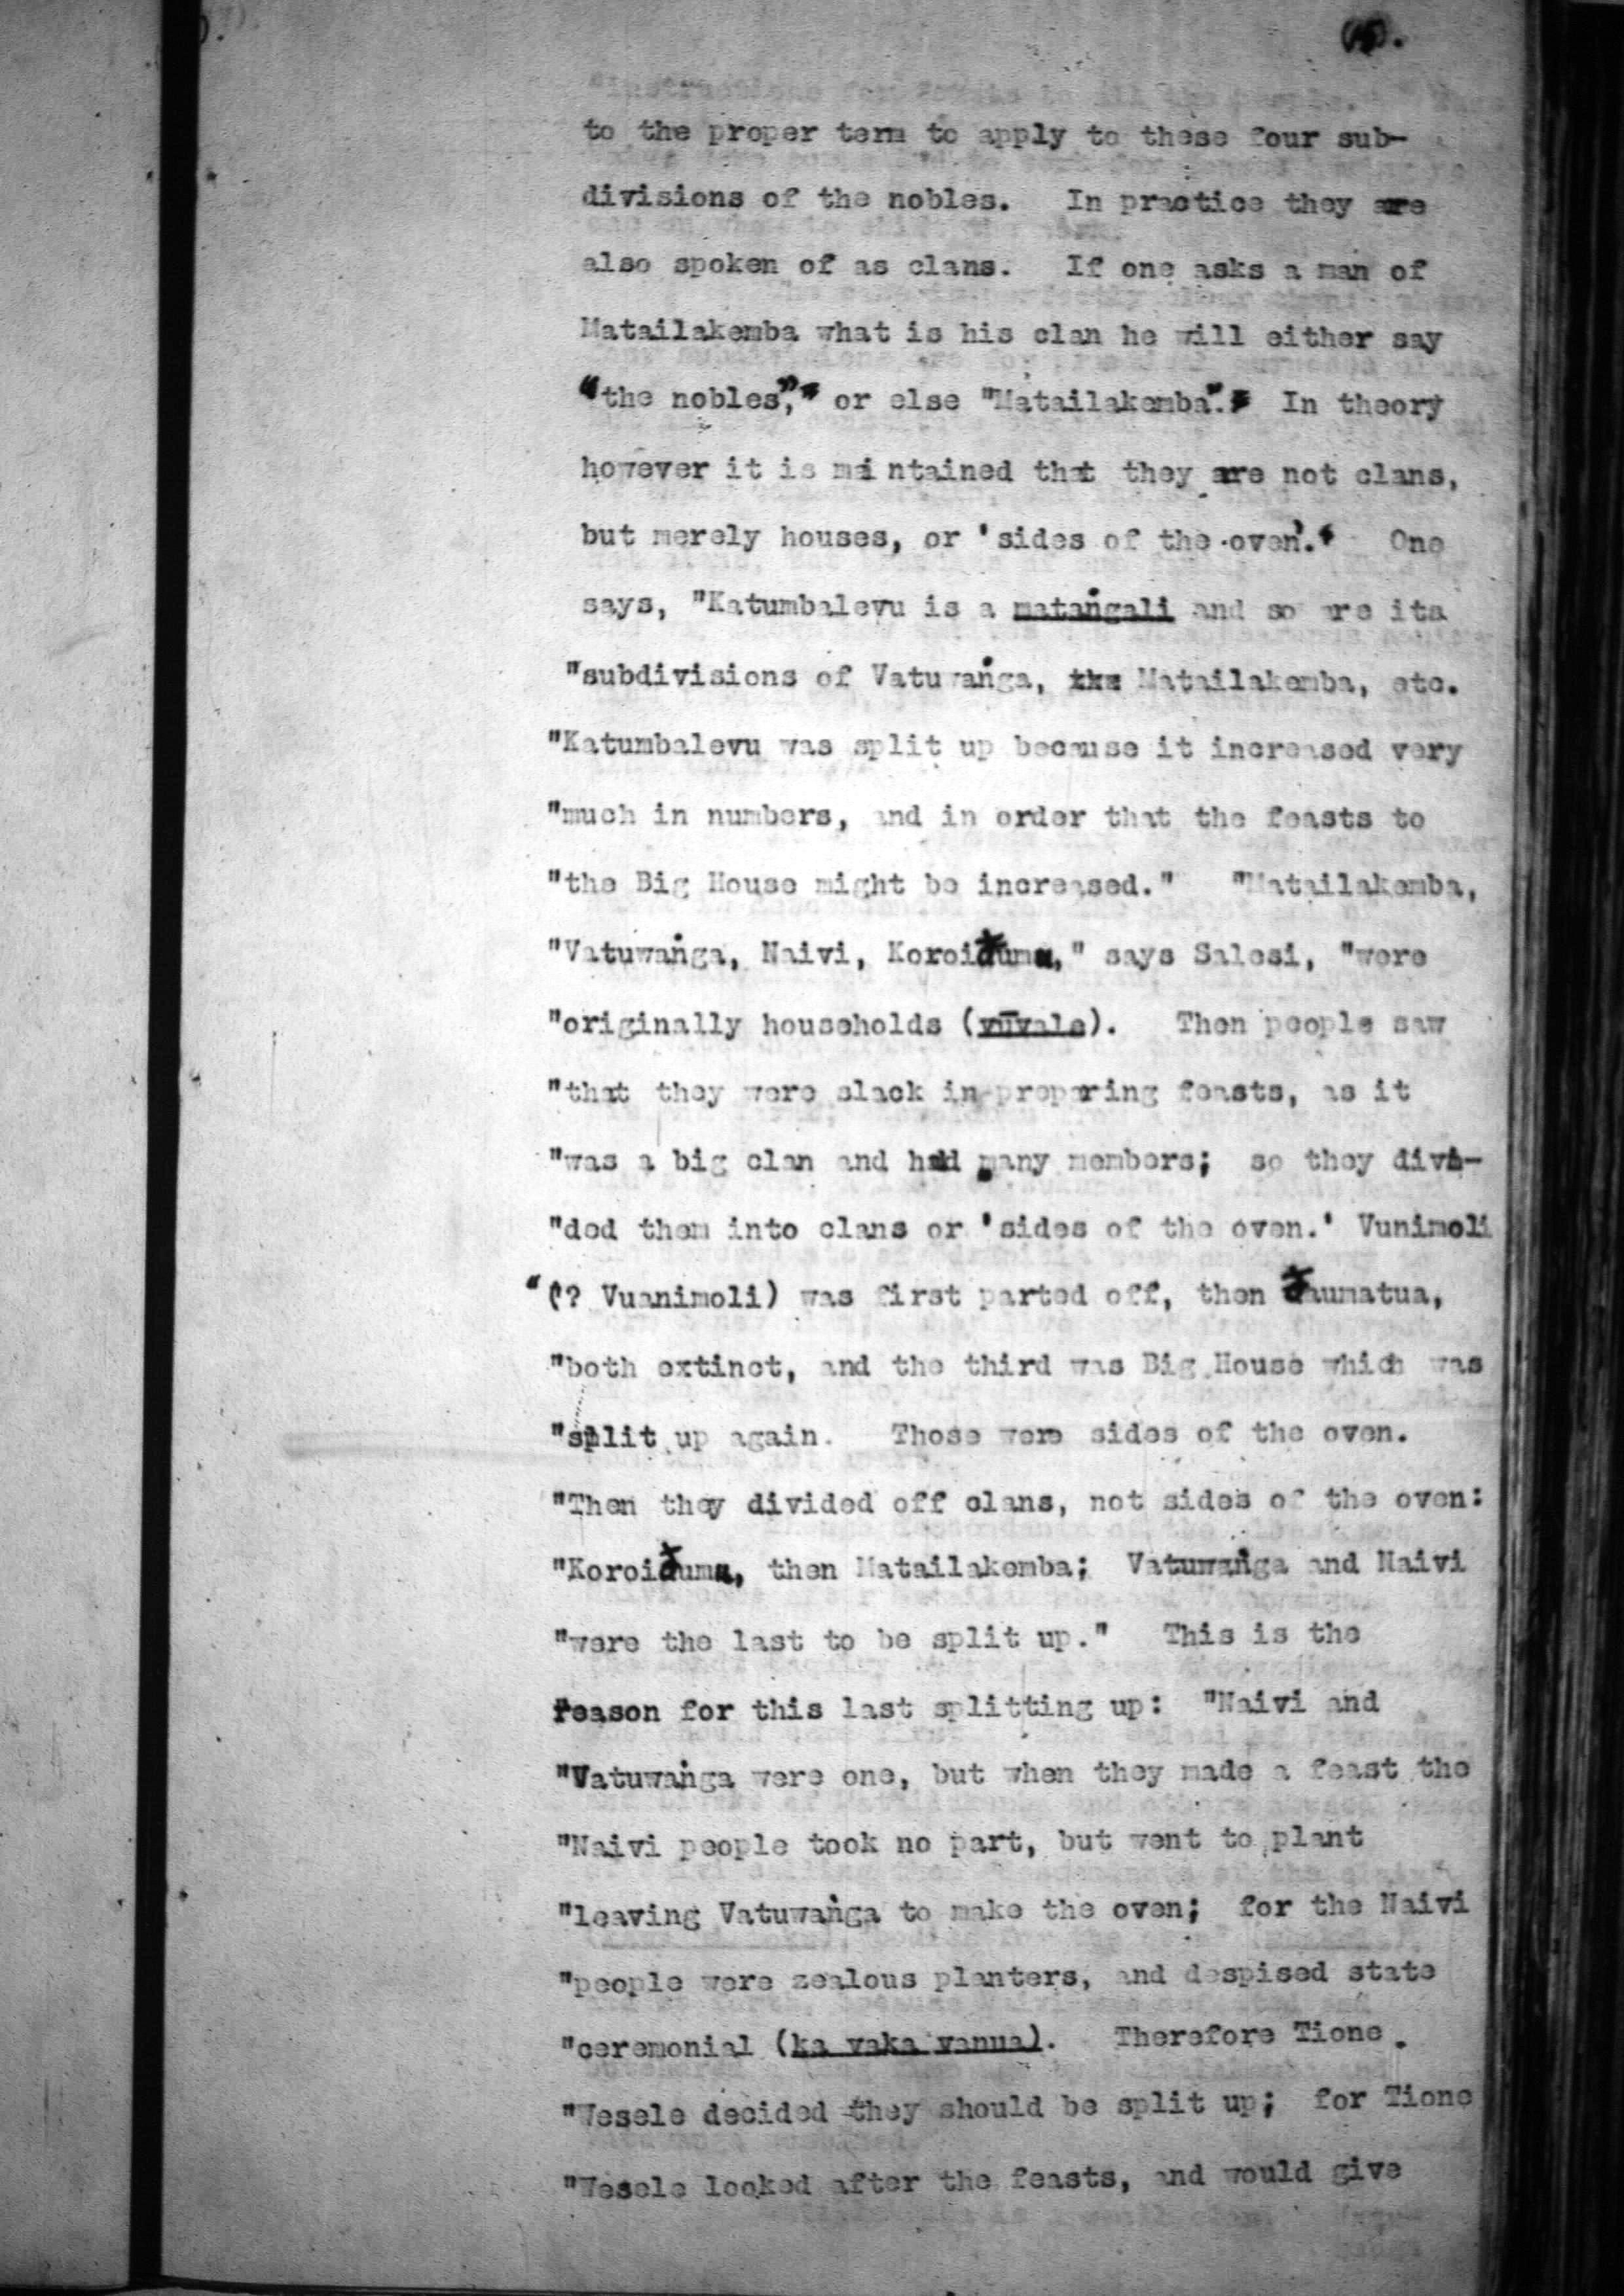 to the proper term to apply to these four sub-
divisions of the nobles. In practice they are
also spoken of as clans. If one asks a man of
Matailakemba what is his clan he will either say
"the nobles", or else "Matailakemba". In theory
however it is maintained that they are not clans,
but merely houses, or 'sides of the oven'. One
says, "Katumbalevu is a mataṅgali and so are its
"subdivisions of Vatuwaṅga, Matailakemba, etc.
"Katumbalevu was split up because it increased very
"much in numbers, and in order that the feasts to
"the Big House might be increased." "Matailakemba,
"Vatuwaṅga, Naivi, Koroiðuma," says Salesi, "were
"originally households (vūvale). Then people saw
"that they were slack in preparing feasts, as it
"was a big clan and had many members; so they divi-
"ded them into clans or 'sides of the oven.' Vunimoli
"(? Vuanimoli) was first parted off, then ðaumatua,
"both extinct, and the third was Big House which was
"split up again. Those were sides of the oven.
"Then they divided off clans, not sides of the oven:
"Koroiðuma, then Matailakemba; Vatuwaṅga and Naivi
"were the last to be split up." This is the
reason for this last splitting up: "Naivi and
"Vatuwaṅga were one, but when they made a feast the
"Naivi people took no part, but went to plant
"leaving Vatuwaṅga to make the oven; for the Naivi
"people were zealous planters, and despised state
"ceremonial (ka vaka vanua). Therefore Tione
"Wesele decided they should be split up; for Tione
"Wesele looked after the feasts, and would give